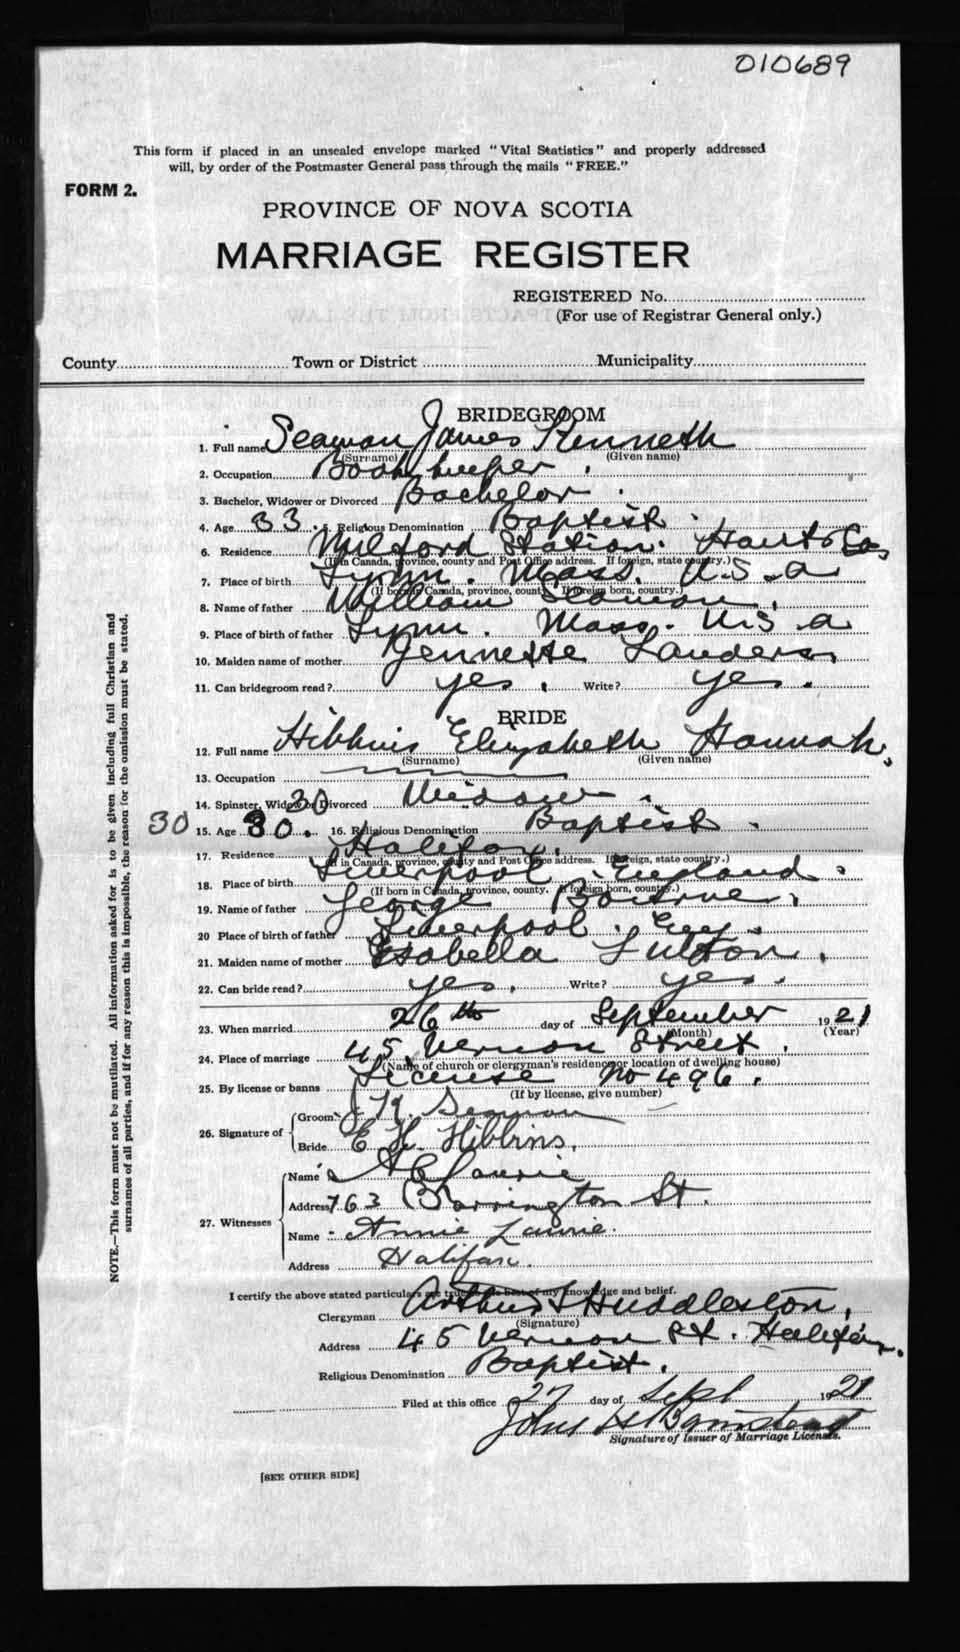 010689
This form if placed in an unsealed envelope marked "Vital Statistics" and properly addressed
will, by order of the Postmaster General pass through the mails "FREE."
FORM 2.
PROVINCE OF NOVA SCOTIA
MARRIAGE REGISTER
REGISTERED No.
(For use of Registrar General only.)
County Town or District Municipality
BRIDEGROOM
1. Full name Seaman James Kenneth
(Surname) (Given name)
2. Occupation Book keeper.
3. Bachelor, Widower or Divorced Bachelor.
4. Age 33. 5. Religious Denomination Baptist.
6. Residence Milford Station. Hants Co,
(If in Canada, province, county and Post Office address. If foreign, state country.)
7. Place of birth Lynn. Mass. U.S.a
(If born in Canada, province, county. If foreign born, country.)
8. Name of father William Seaman.
9. Place of birth of father Lynn. Mass. U.S.a
10. Maiden name of mother Jennette Landers
11. Can bridegroom read? yes. Write? yes.
BRIDE
12. Full name Hibbins Elizabeth Hannah,
(Surname) (Given name)
13. Occupation
14. Spinster, Widow or Divorced Widow.
30
30 15. Age 30. 16. Religious Denomination Baptist.
17. Residence Halifax.
(If in Canada, province, county and Post Office address. If foreign, state country.)
18. Place of birth Liverpool. England.
(If born in Canada, province, county. If foreign born, country.)
19. Name of father George Bourne.
20 Place of birth of father Liverpool. Eng.
21. Maiden name of mother Isabella Fulton.
22. Can bride read? yes. Write? yes.
23. When married 26th day of September 1921
(Month) (Year)
24. Place of marriage 45 Vernon Street.
(Name of church or clergyman's residence or location of dwelling house)
25. By license or banns License No 496.
(If by license, give number)
26. Signature of
Groom J K. Seaman
Bride E H. Hibbins,
27. Witnesses
Name A C Laurie
Address 763 Barrington St.
Name Annie Laurie.
Address Halifax.
I certify the above stated particulars are true to the best of my knowledge and belief.
Clergyman Arthur S Huddleston,
(Signature)
Address 45 Vernon St. Halifax.
Religious Denomination Baptist.
Filed at this office 27 day of Sept 1921
John H Barnstead
Signature of Issuer of Marriage Licenses.
[SEE OTHER SIDE]
NOTE.—This form must not be mutilated. All information asked for is to be given including full Christian and
surnames of all parties, and if for any reason this is impossible, the reason for the omission must be stated.